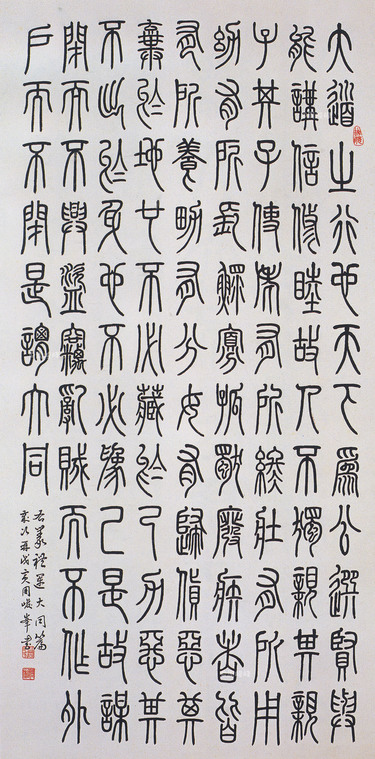 大道之行也天下為公選賢與
能講信修睦故人不獨親其親
子其子使老有所終壯有所用
幼有所長鰥寡孤獨廢疾者皆
有所養男有分女有歸貨惡其
棄於地也不必藏於己力惡其
不出於身也不必為己是故謀
閉而不興盜竊亂賊而不作外
戶而不閉是謂大同
右禮運大同篇
歲次亥周峯書